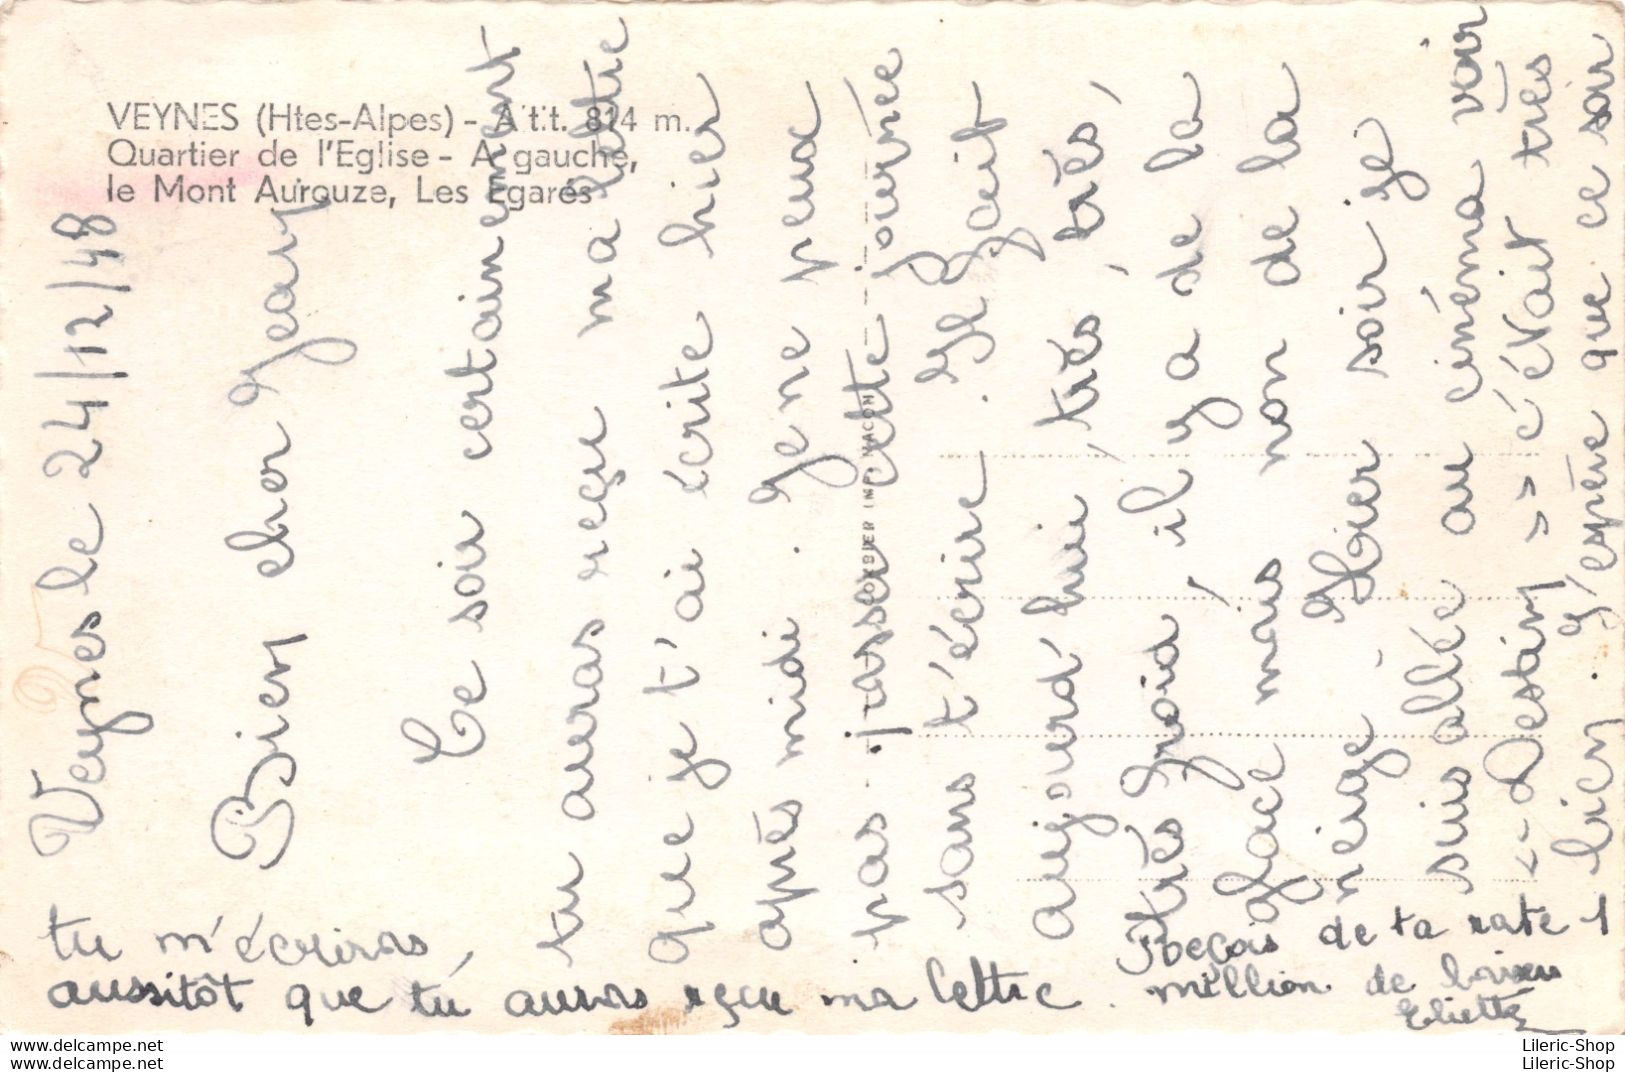 VEYNES (Htes-Alpes) - Altit. 814 m.
Quartier de l'Eglise - A gauche,
le Mont Aurouze, Les Egarés
COMBIER IMP. MACON
Veynes le 24/12/48
Bien cher Jean
Ce soir certainement
tu auras reçu ma lettre
que je t'ai écrite hier
après midi. Je ne peux
pas passer cette journée
sans t'écrire. Il fait
aujourd'hui, très, très, très,
très froid, il y a de la
glace mais non de la
neige. Hier soir je
suis allée au cinéma voir
<< Destin >> c'était très
bien. J'espère que ce soir
tu m'écriras,
aussitôt que tu auras reçu ma lettre.
Reçois de ta rate 1
million de baisers
Eliette
Lileric-Shop
www.delcampe.net
Lileric-Shop
www.delcampe.net